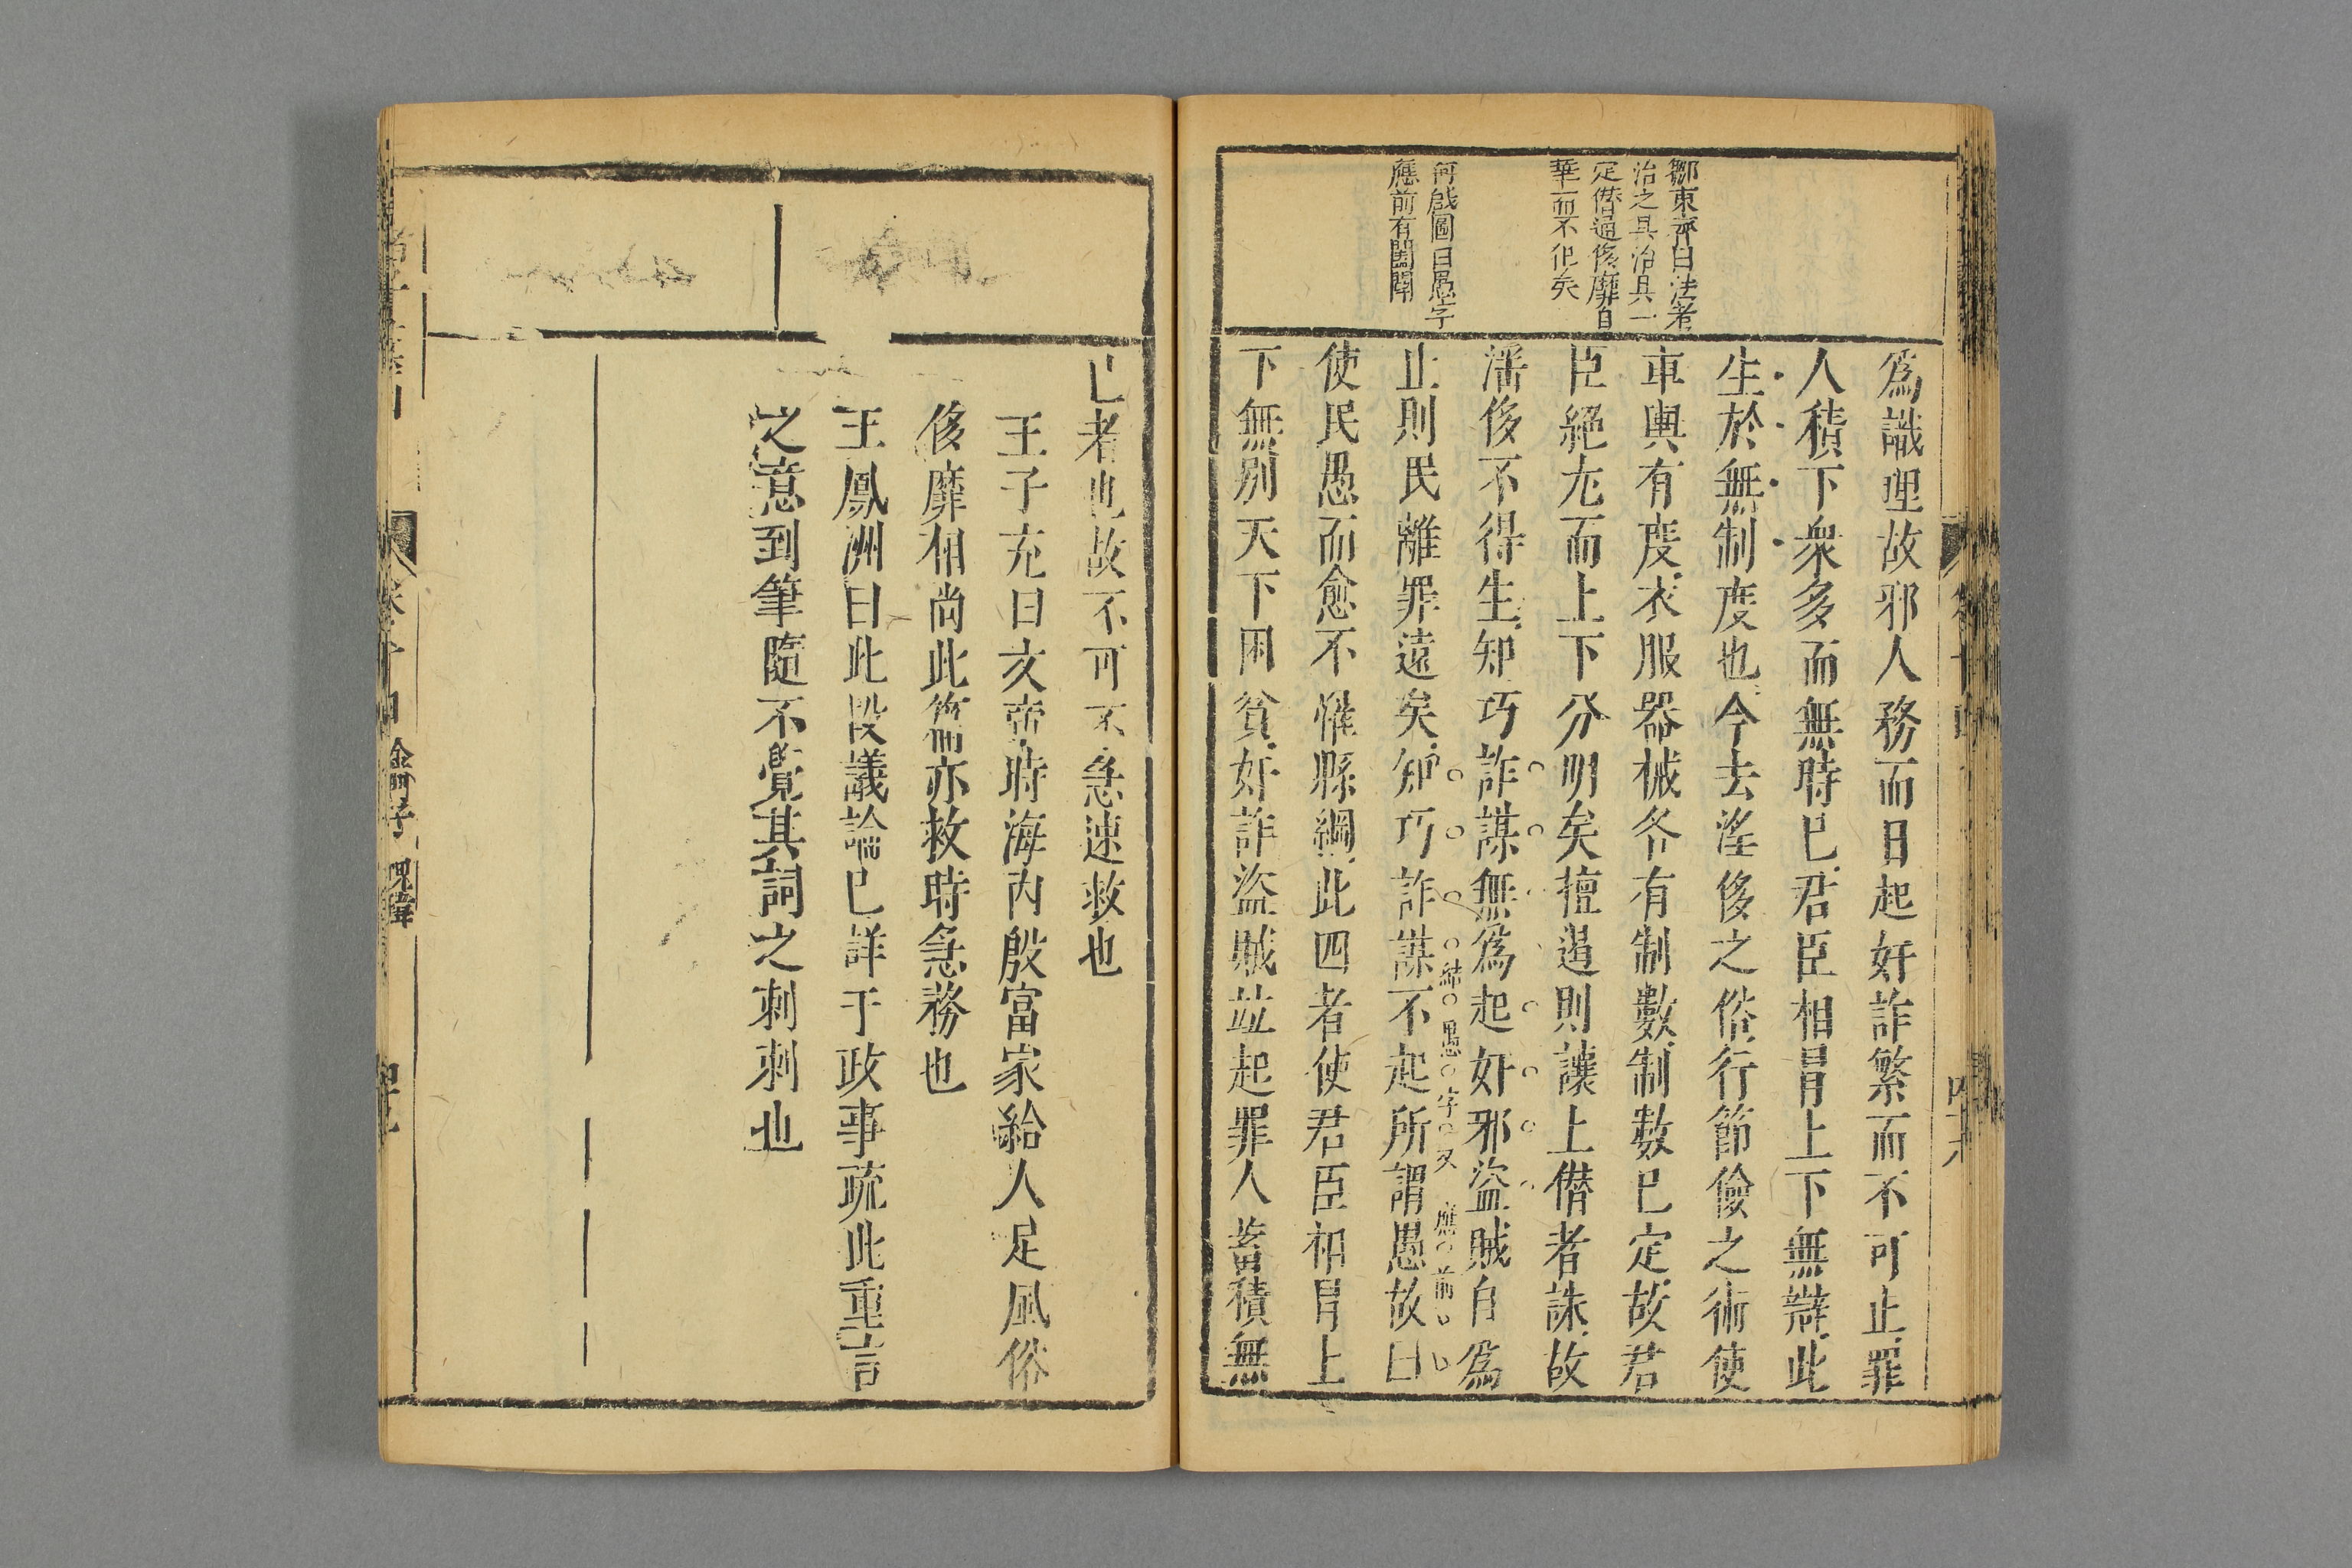 鄒東齊曰法者
治之具治具一
定僣逼侈靡自
華而不化矣
何啟圖曰愚字
應前有關閘
爲識理故邪人務而日起奸詐繁而不可止罪
人積下衆多而無時已君臣相冒上下無辯此
生於無制度也今去滛侈之俗行節儉之術使
車輿有度衣服器械各有制數制數已定故君
臣絕尢而上下分明矣擅遏則讓上僣者誅故
滛侈不得生知巧詐謀無爲起奸邪盜賊自爲
止則民離罪遠矣知巧詐謀不起所謂愚故曰
結愚字又應前
使民愚而愈不罹縣網此四者使君臣相冒上
下無別天下困貧奸詐盜賊竝起罪人蓄積無
已者也故不可不急速救也
王子充曰文帝時海內殷富家給人足風俗
侈靡相尚此篇亦救時急務也
王鳳洲曰此段議論已詳于政事疏此重言
之意到筆隨不覺其詞之刺刺也